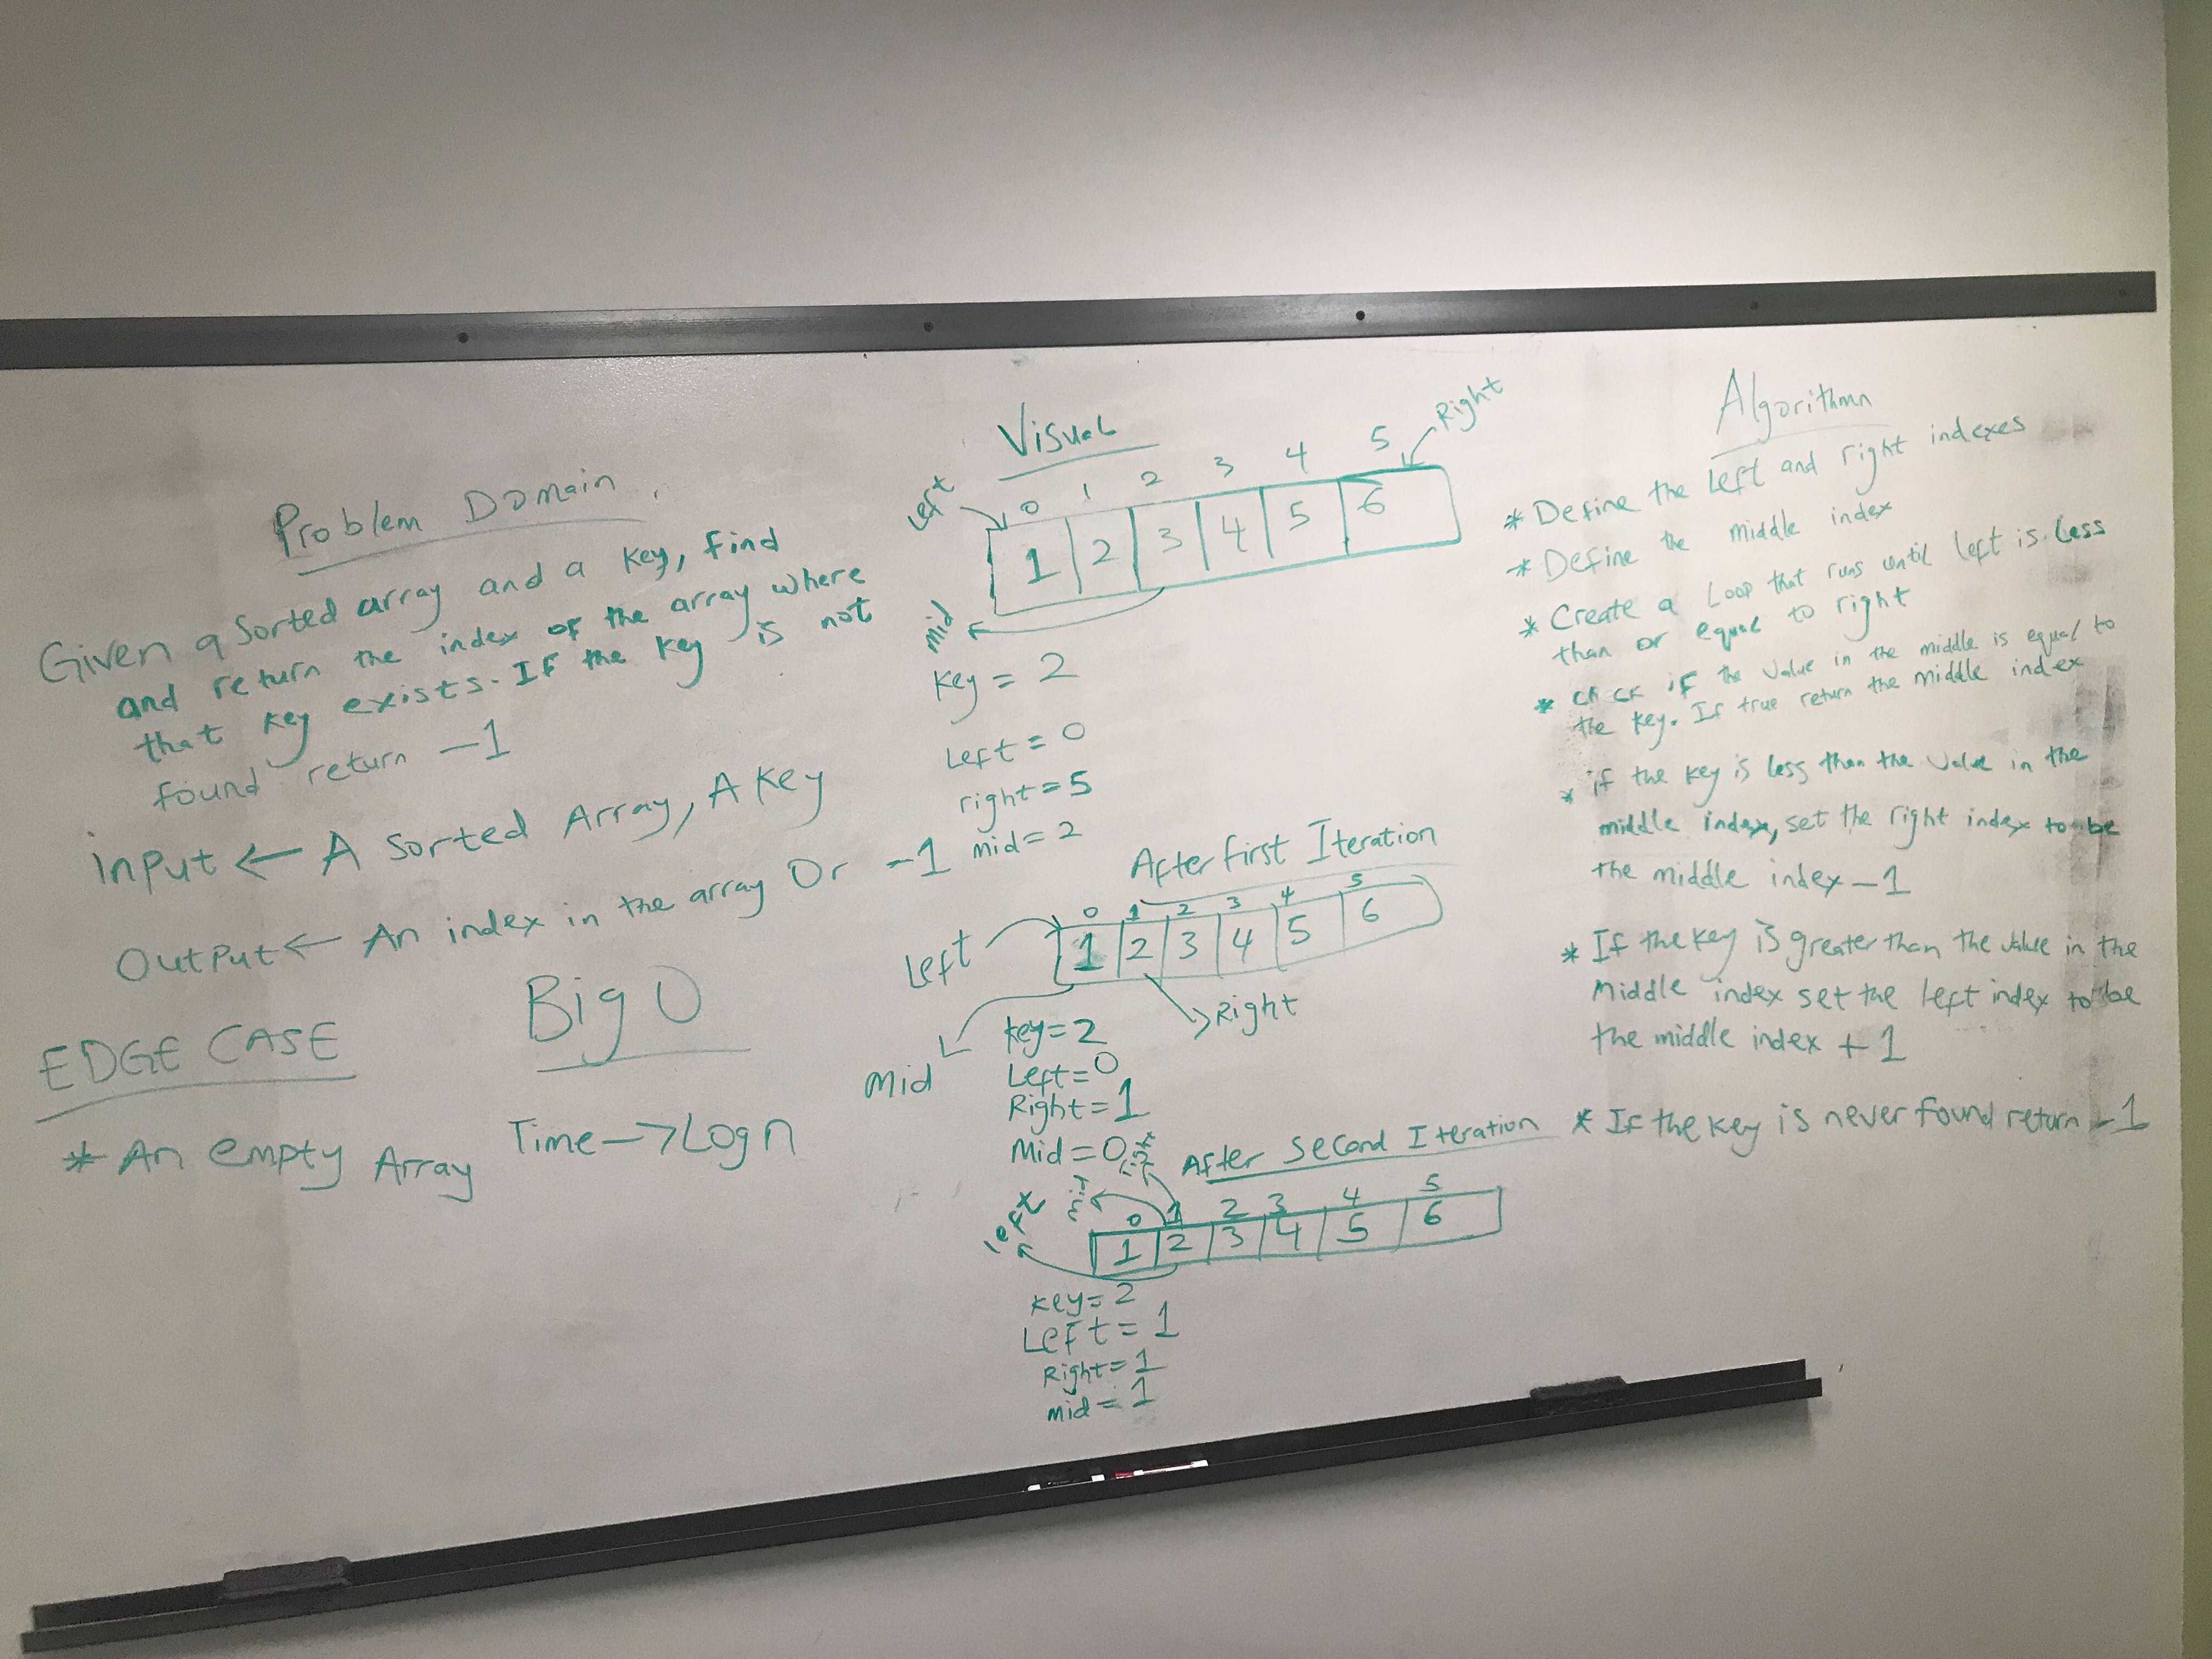 Problem Domain
Given a sorted array and a key, find
and return the index of the array where
that key exists. If the key is not
found return -1
input ← A sorted Array, A key
Output ← An index in the array Or -1
EDGE CASE
* An empty Array
Big O
Time → Log n
Visual
Left
Right
0 1 2 3 4 5
1 2 3 4 5 6
mid
key = 2
Left = 0
right = 5
mid = 2
After first Iteration
0 1 2 3 4 5
1 2 3 4 5 6
Left
Right
Mid
key = 2
Left = 0
Right = 1
Mid = 0
After Second Iteration
0 1 2 3 4 5
1 2 3 4 5 6
left
key = 2
Left = 1
Right = 1
mid = 1
Algorithmn
* Define the Left and right indexes
* Define the middle index
* Create a Loop that runs until left is less
than or equal to right
* if the value in the middle is equal to
the key. If true return the middle index
* if the key is less than the value in the
middle index, set the right index to be
the middle index -1
* If the key is greater than the value in the
Middle index set the left index to be
the middle index + 1
* If the key is never found return -1